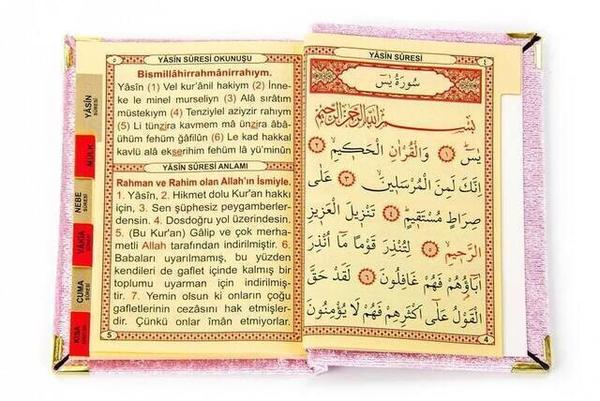 YÂSİN SÛRESİ OKUNUŞU
Bismillâhirrahmânirrahıym.
Yâsîn (1) Vel kur'ânil hakiym (2) İnne-
ke le minel murseliyn (3) Alâ sıratım
müstekıym (4) Tenziylel aziyzir rahıym
(5) Li tünzira kavmem mâ ünzira âbâ-
ühüm fehüm gâfilûn (6) Le kad hakkal
kavlü alâ ekserihim fehüm lâ yü'minûn
YÂSİN SÛRESİ ANLAMI
Rahman ve Rahim olan Allah'ın İsmiyle.
1. Yâsîn, 2. Hikmet dolu Kur'an hakkı
için, 3. Sen şüphesiz peygamberler-
densin. 4. Dosdoğru yol üzerindesin.
5. (Bu Kur'an) Gâlip ve çok merha-
metli Allah tarafından indirilmiştir. 6.
Babaları uyarılmamış, bu yüzden
kendileri de gaflet içinde kalmış bir
toplumu uyarman için indirilmiş-
tir. 7. Yemin olsun ki onların çoğu
gafletlerinin cezasını hak etmişler-
dir. Çünkü onlar îman etmiyorlar.
5
YÂSİN
SÛRESİ
MÜLK
NEBE
SÛRESİ
VÂKIA
CUMA
SÛRESİ
KISA
YÂSİN SÛRESİ
٤
سُورَةُ يٰسٓ
بِسْمِ اللّٰهِ الرَّحْمٰنِ الرَّحِيمِ
يٰسٓ ﴿١﴾ وَالْقُرْاٰنِ الْحَكِيمِ ﴿٢﴾
اِنَّكَ لَمِنَ الْمُرْسَلِينَ ﴿٣﴾ عَلٰى
صِرَاطٍ مُسْتَقِيمٍ ﴿٤﴾ تَنْزِيلَ الْعَزِيزِ
الرَّحِيمِ ﴿٥﴾ لِتُنْذِرَ قَوْمًا مَٓا اُنْذِرَ
اٰبَٓاؤُهُمْ فَهُمْ غَافِلُونَ ﴿٦﴾ لَقَدْ حَقَّ
الْقَوْلُ عَلٰٓى اَكْثَرِهِمْ فَهُمْ لَا يُؤْمِنُونَ
4